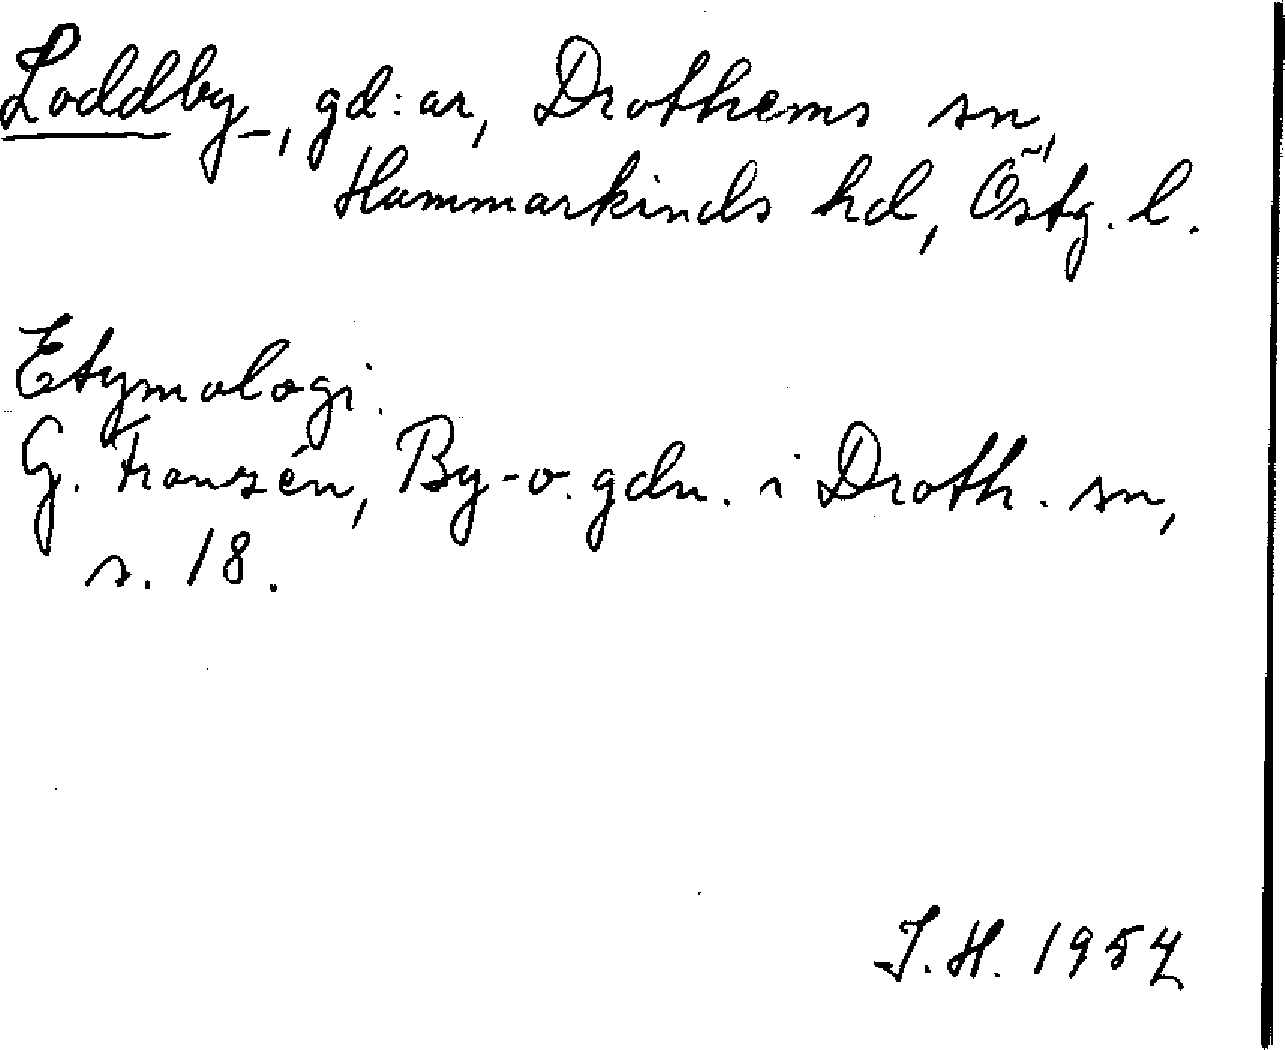 Loddby, gd:ar, Drothems sn,
Hammarkinds hd, Östg. l.
Etymologi.
G. Franzén, By- o. gdn. i Droth. sn,
s. 18.
J.H. 1954